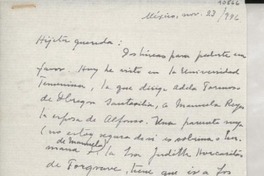 10866
México, nov. 23/946
Hijita querida:
Dos líneas para pedirte un
favor. Hoy he visto en la Universidad
Femenina, la que dirige Adela Formoso
de Obregón Santacilia, a Manuela Reyes
la esposa de Alfonso. Una parienta suya
(no estoy segura de si es sobrina o her-
mana de Manuela) la Sra Judith
de Torgrave, tiene que ir a los